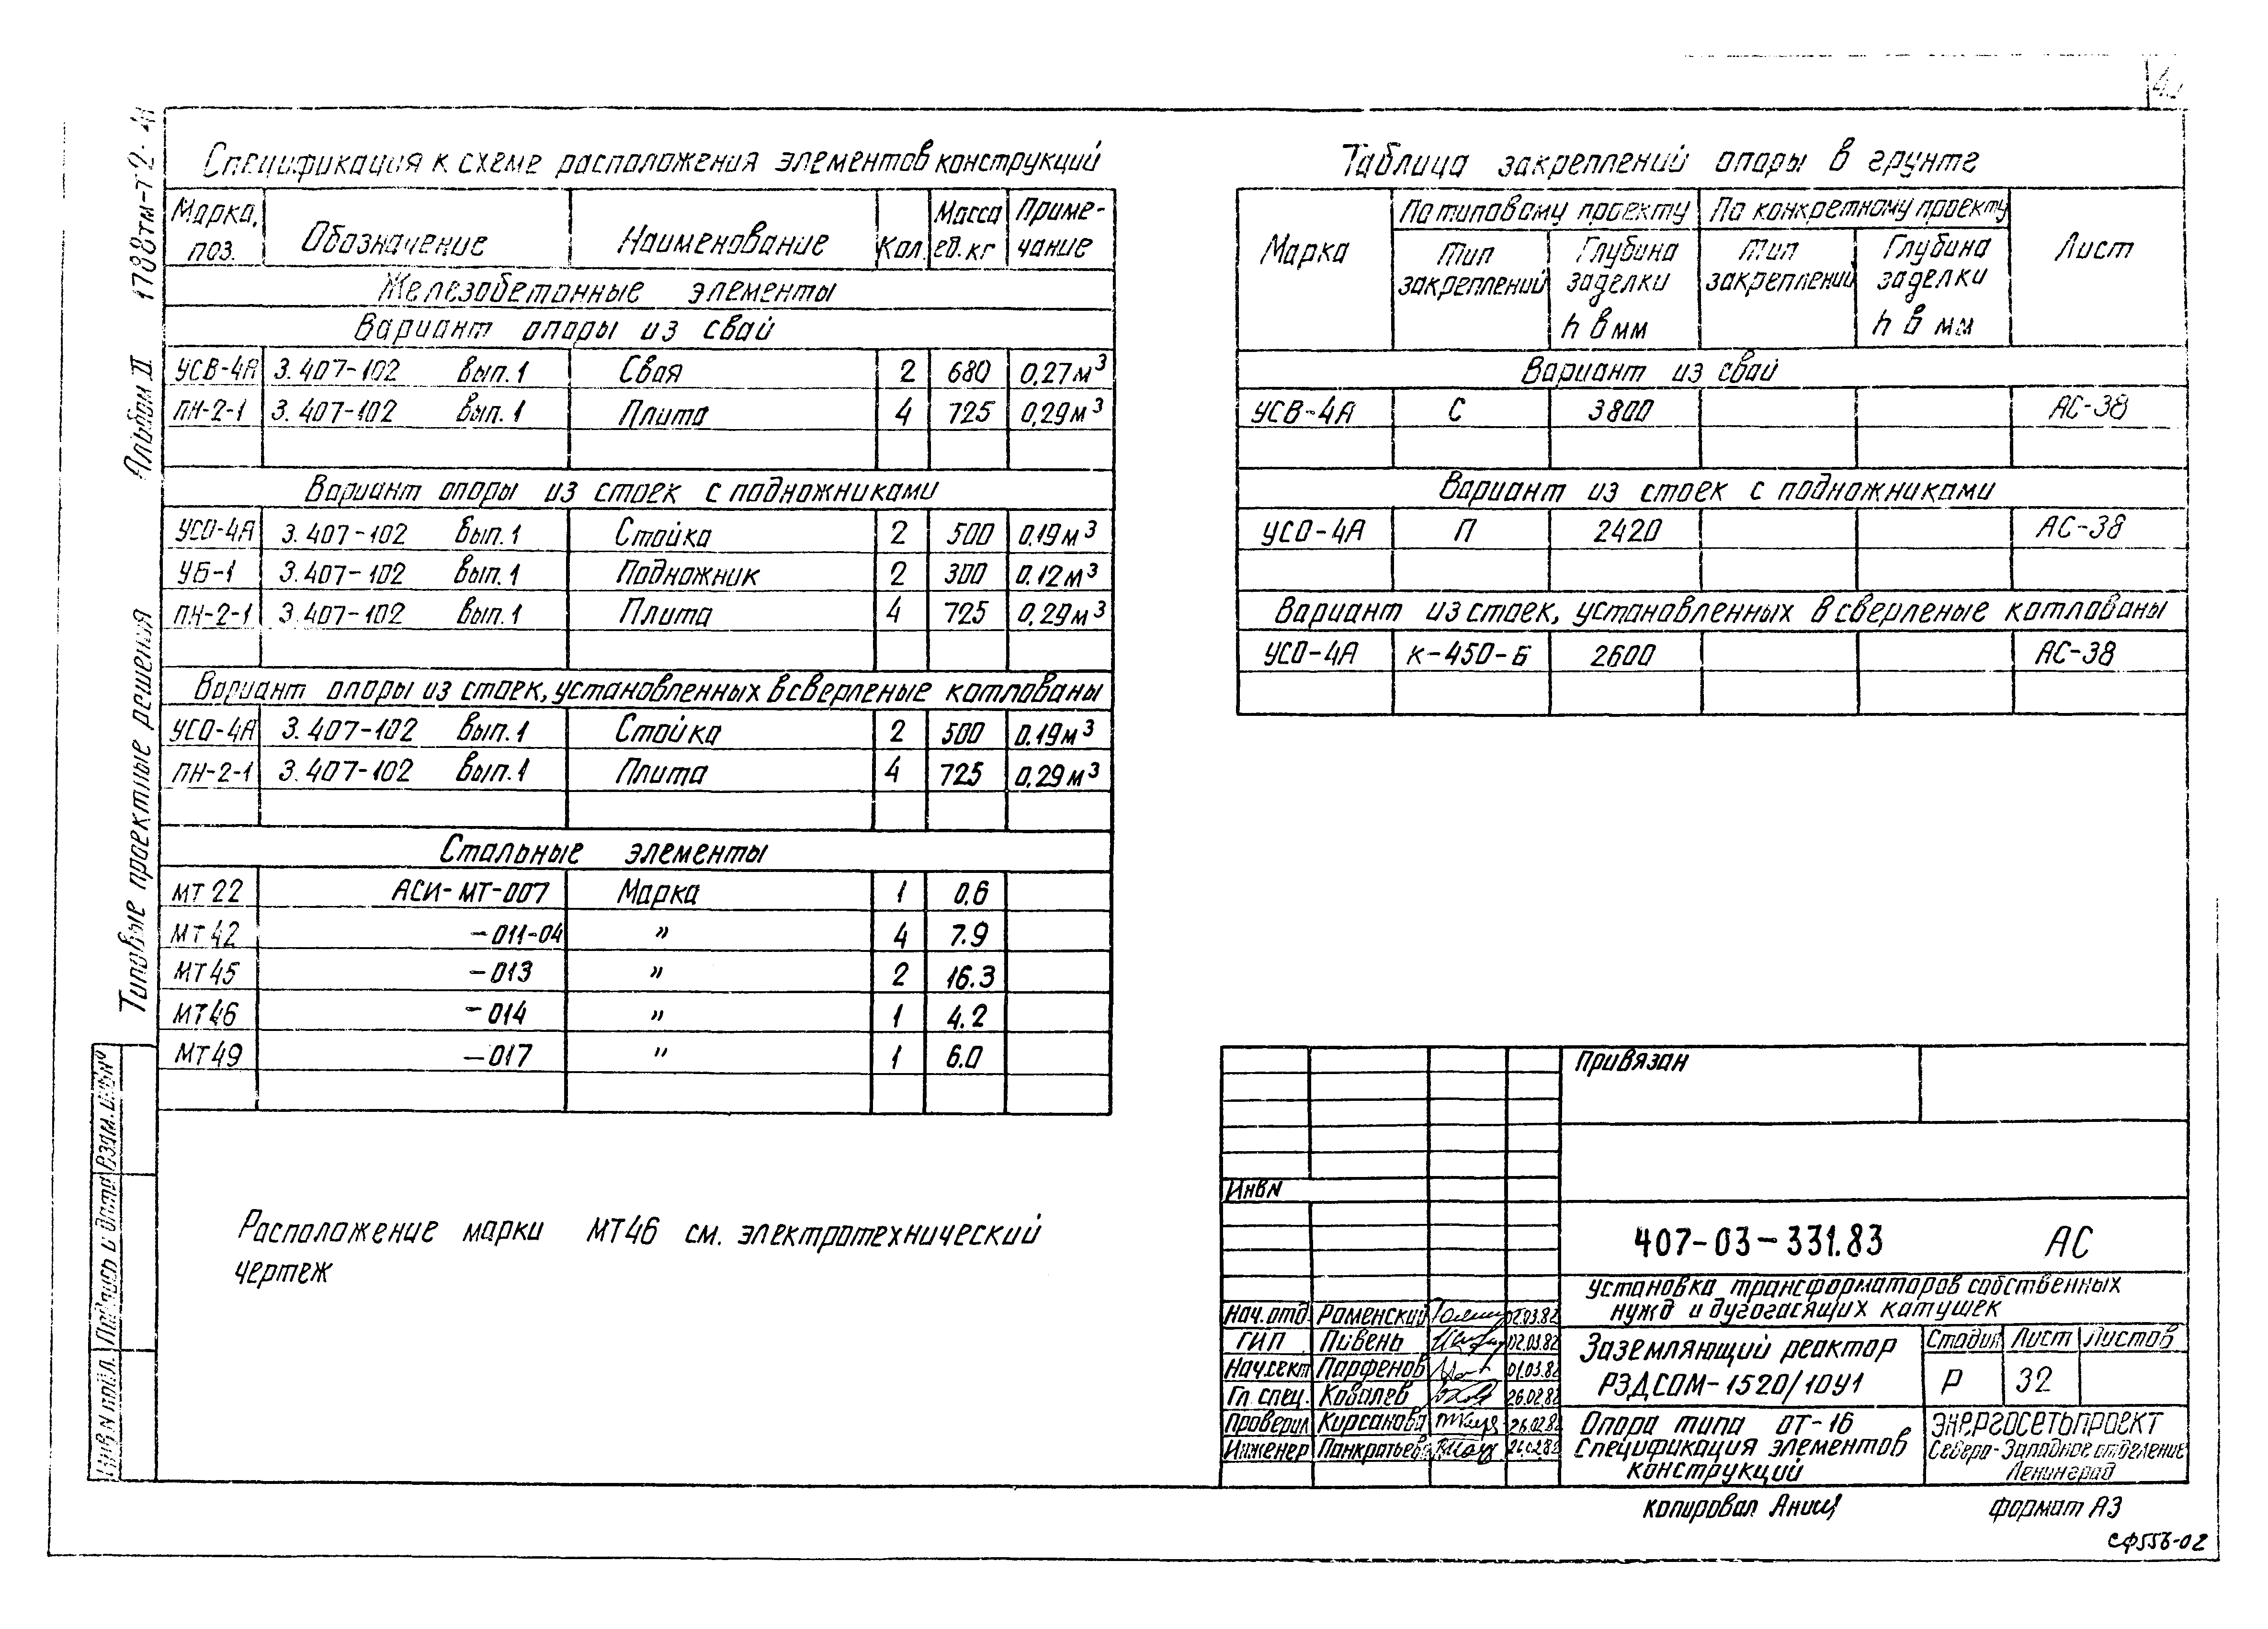 Спецификация к схеме расположения элементов конструкций
Марка, поз. Обозначение Наименование Кол. Масса ед. кг Примечание
Железобетонные элементы
Вариант опоры из свай
УСВ-4А 3.407-102 Вып.1 Свая 2 680 0,27м³
ПН-2-1 3.407-102 Вып.1 Плита 4 725 0,29м³
Вариант опоры из стоек с подножниками
УСО-4А 3.407-102 Вып.1 Стойка 2 500 0.19м³
УБ-1 3.407-102 Вып.1 Подножник 2 300 0.12м³
ПН-2-1 3.407-102 Вып.1 Плита 4 725 0,29м³
Вариант опоры из стоек, установленных в сверленые котлованы
УСО-4А 3.407-102 Вып.1 Стойка 2 500 0.19м³
ПН-2-1 3.407-102 Вып.1 Плита 4 725 0,29м³
Стальные элементы
МТ22 АСИ-МТ-007 Марка 1 0.6
МТ42 -011-04 " 4 7.9
МТ45 -013 " 2 16.3
МТ46 -014 " 1 4.2
МТ49 -017 " 1 6.0
Расположение марки МТ46 см. электротехнический
чертеж
Таблица закреплений опоры в грунте
Марка По типовому проекту По конкретному проекту Лист
Тип закреплений Глубина заделки h в мм Тип закреплений Глубина заделки h в мм
Вариант из свай
УСВ-4А С 3800 АС-38
Вариант из стоек с подножниками
УСО-4А П 2420 АС-38
Вариант из стоек, установленных в сверленые котлованы
УСО-4А К-450-Б 2600 АС-38
Привязан
Инв№
407-03-331.83 АС
Установка трансформаторов собственных
нужд и дугогасящих катушек
Нач.отд. Роменский 02.03.82
ГИП Пивень 02.03.82
Нач.сект Парфенов 01.03.82
Гл. спец. Ковалев 26.02.82
Проверил Кирсанова 26.02.82
Инженер Панкратьева
Заземляющий реактор
РЗДСОМ-1520/10У1
Стадия Лист Листов
Р 32
Опора типа ОТ-16
Спецификация элементов
конструкций
ЭНЕРГОСЕТЬПРОЕКТ
Северо-Западное отделение
Ленинград
копировал
формат А3
СФ556-02
Типовые проектные решения Альбом II 1788тм-т2-
Инв.№ подл. Подпись и дата Взам.инв№